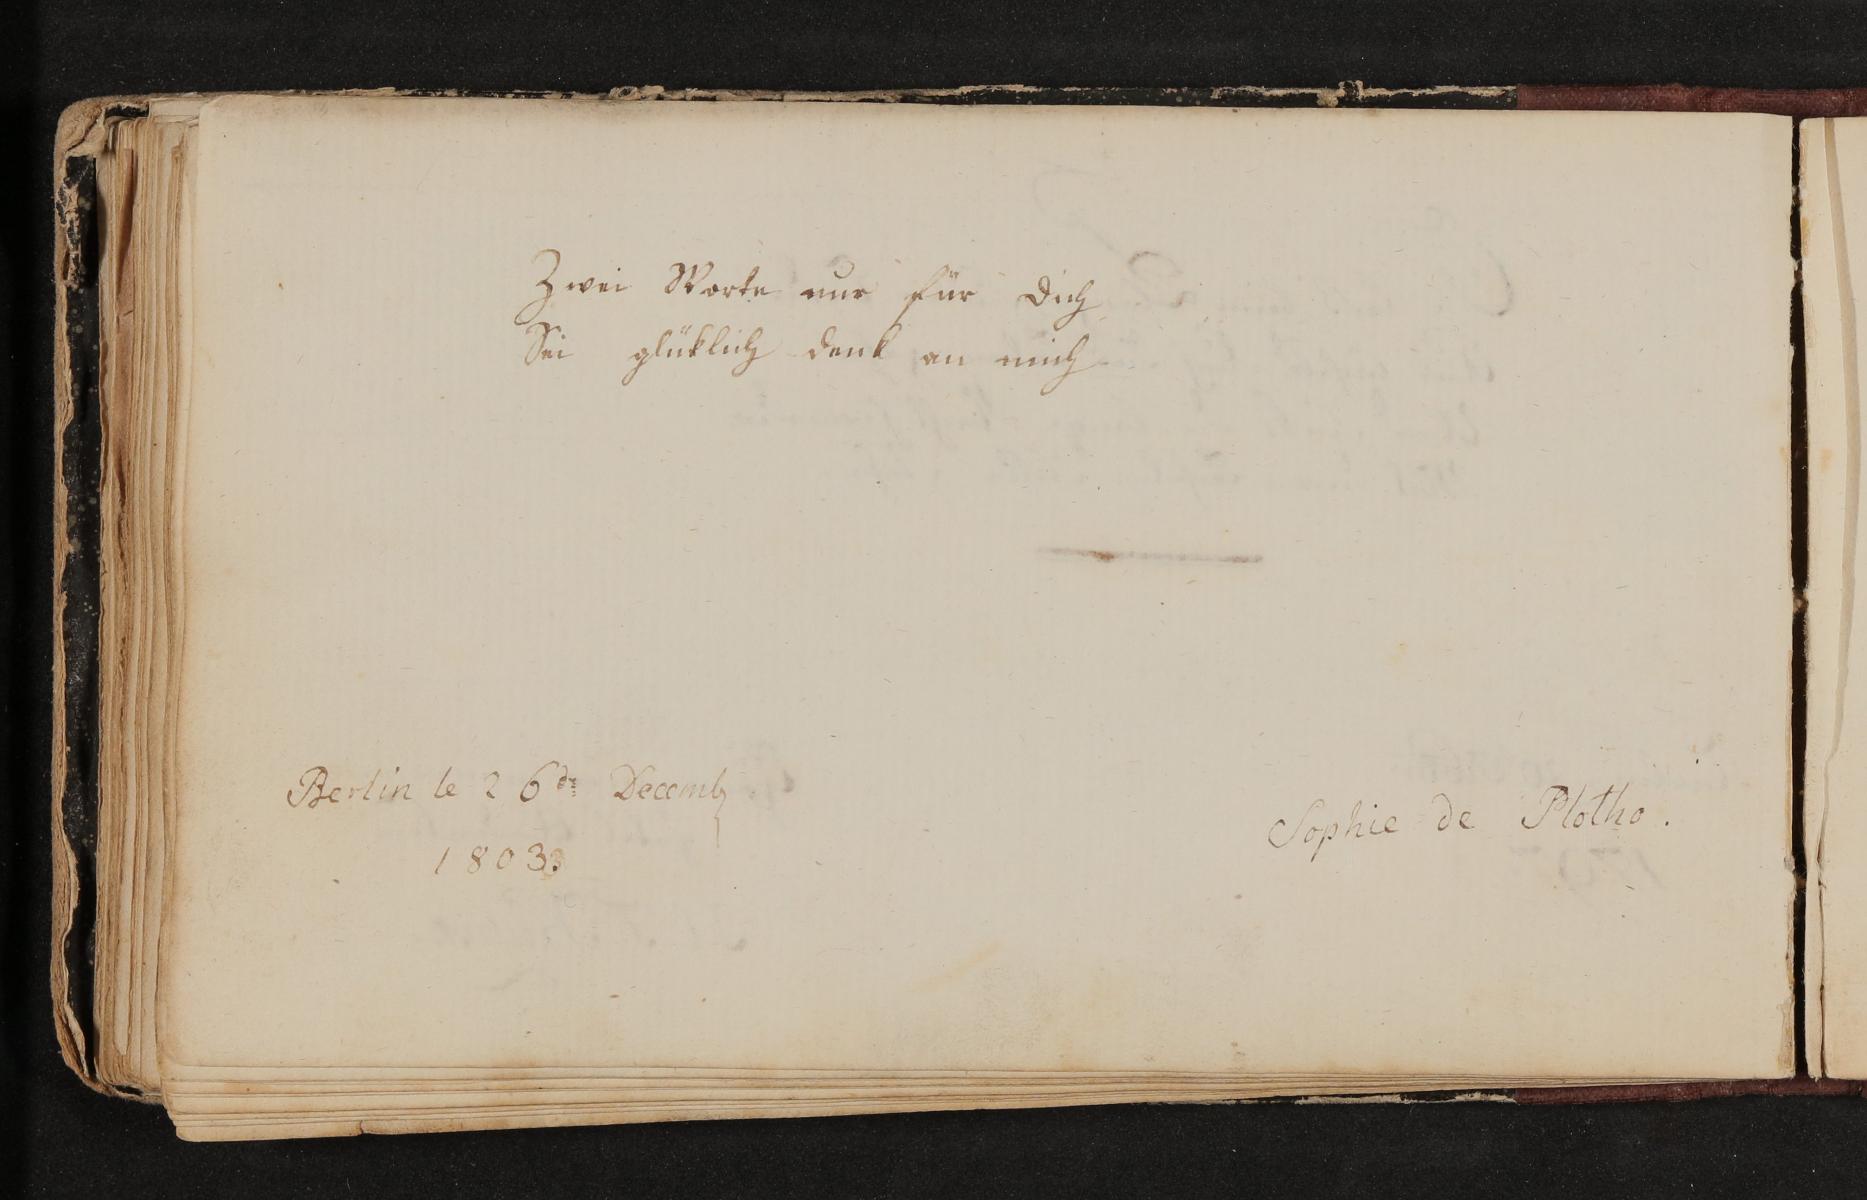 Zwei Worte nur für Dich
Sei glüklich denk an mich
Berlin le 26 Decemb
1803
Sophie de Plotho.